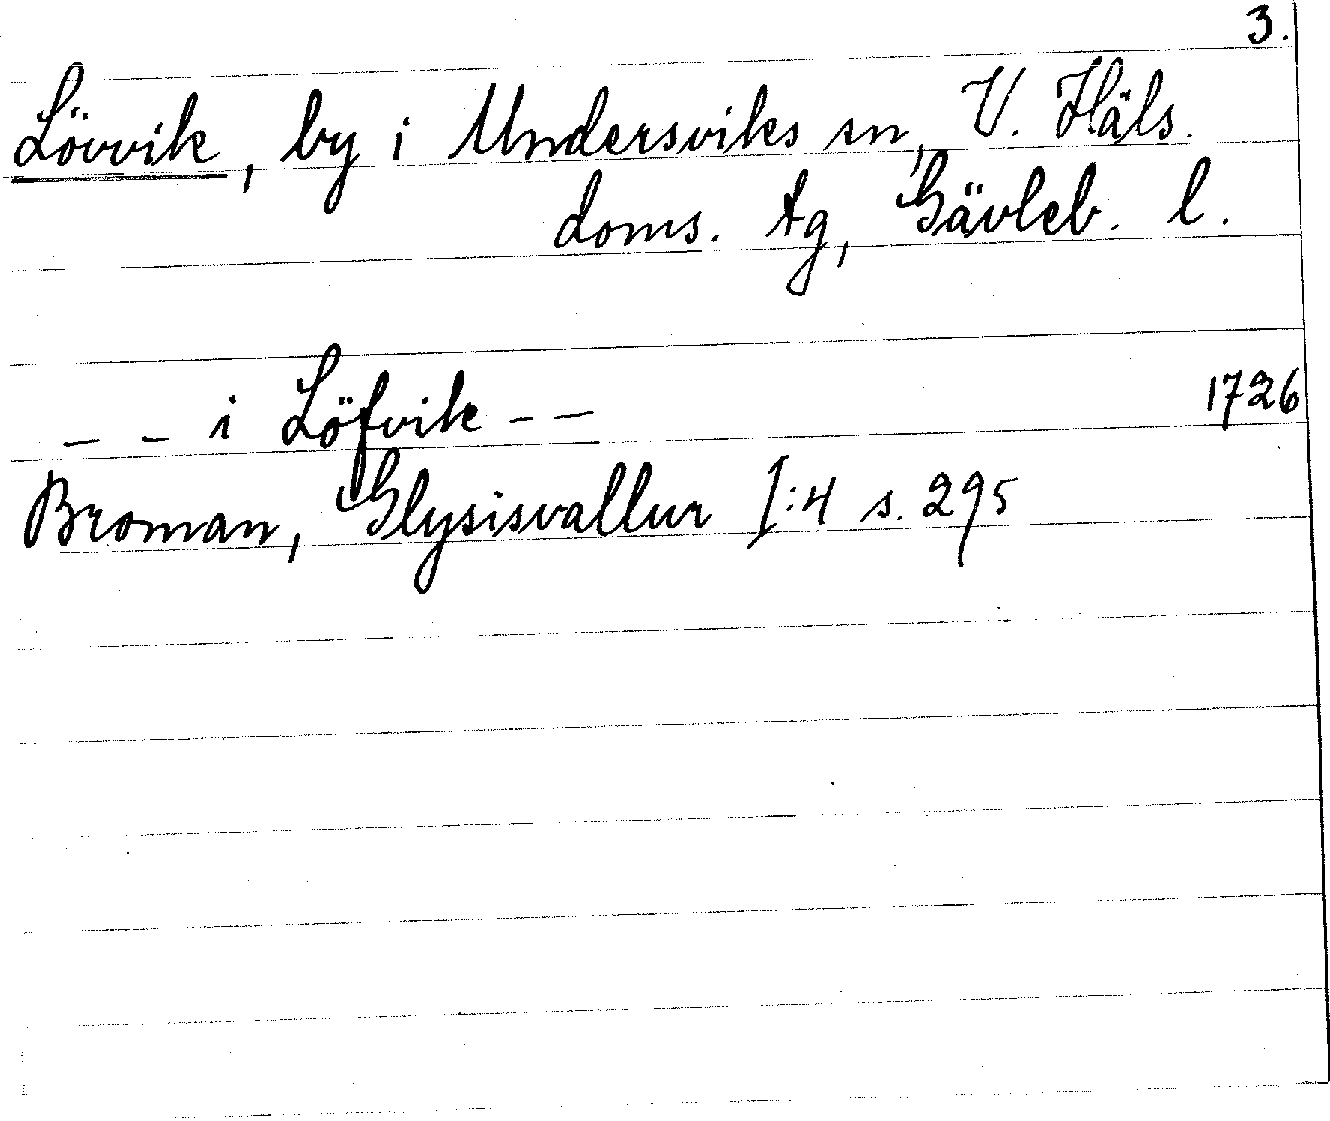 3.
Lövvik, by i Undersviks sn, V. Häls.
doms. tg, Gävleb. l.
– – i Löfvik – – 1726
Broman, Glysisvallur I:4 s. 295